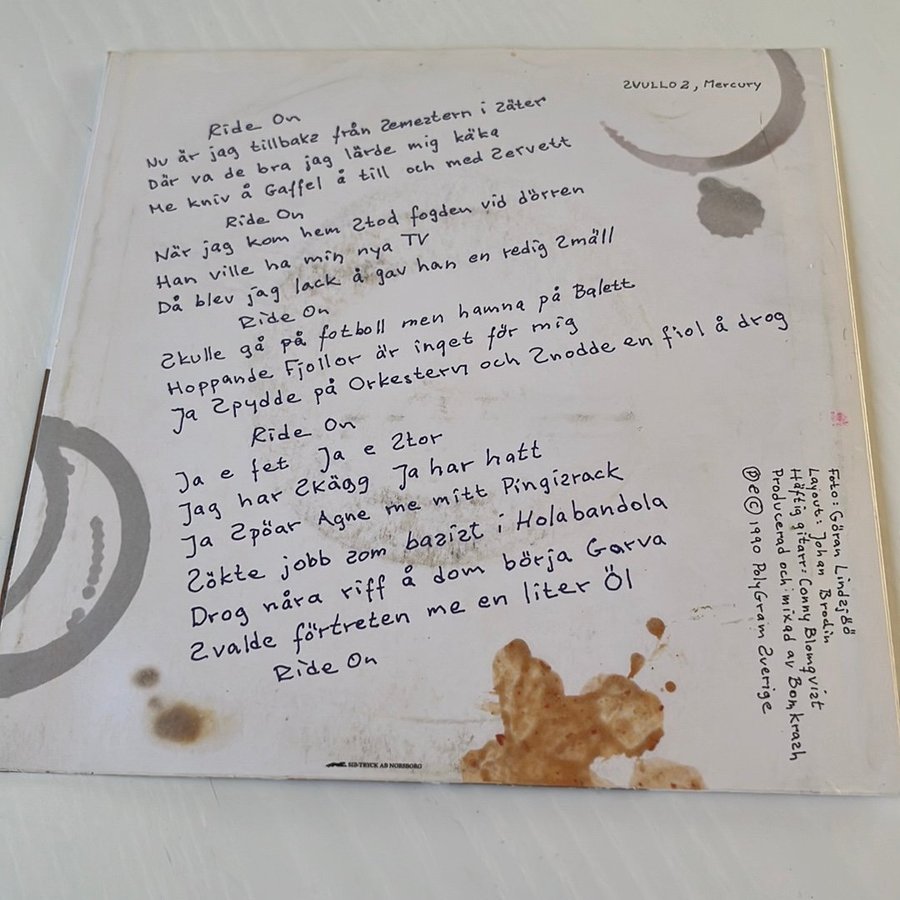 2VULLO 2, Mercury
Ride On
Nu är jag tillbakz från 2eme2tern i 2äter
Där va de bra jag lärde mig käka
Me kniv å Gaffel å till och med 2ervett
Ride On
När jag kom hem 2tod fogden vid dörren
Han ville ha min nya TV
Då blev jag lack å gav han en redig 2mäll
Ride On
2kulle gå på fotboll men hamna på Balett
Hoppande Fjollor är inget för mig
Ja 2pydde på Orkestern och 2nodde en fiol å drog
Ride On
Ja e fet Ja e 2tor
Jag har 2kägg Ja har hatt
Ja 2pöar Agne me mitt Pingi2rack
2ökte jobb 2om ba2i2t i Holabandola
Drog nåra riff å dom börja Garva
2valde förtreten me en liter Öl
Ride On
Foto: Göran Lind2jöö
Layout: Johan Brodin
Häftig gitarr: Conny Blomqvi2t
Producerad och mixad av Bomkra2h
℗ e © 1990 PolyGram 2verige
SIB-TRYCK AB NORSBORG